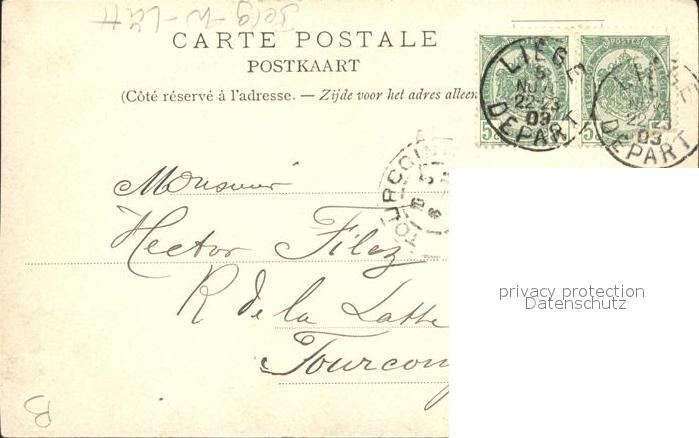 Belg-W-Lütt
CARTE POSTALE
POSTKAART
(Côté réservé à l'adresse. — Zijde voor het adres alleen
POSTES
LIÉGE
5
NOV
22-23
03
DEPART
LIÉGE
22-23
03
DEPART
TOURCOING
Monsieur
Hector Filez
R de la Latte
Tourcoing
privacy protection
Datenschutz
B